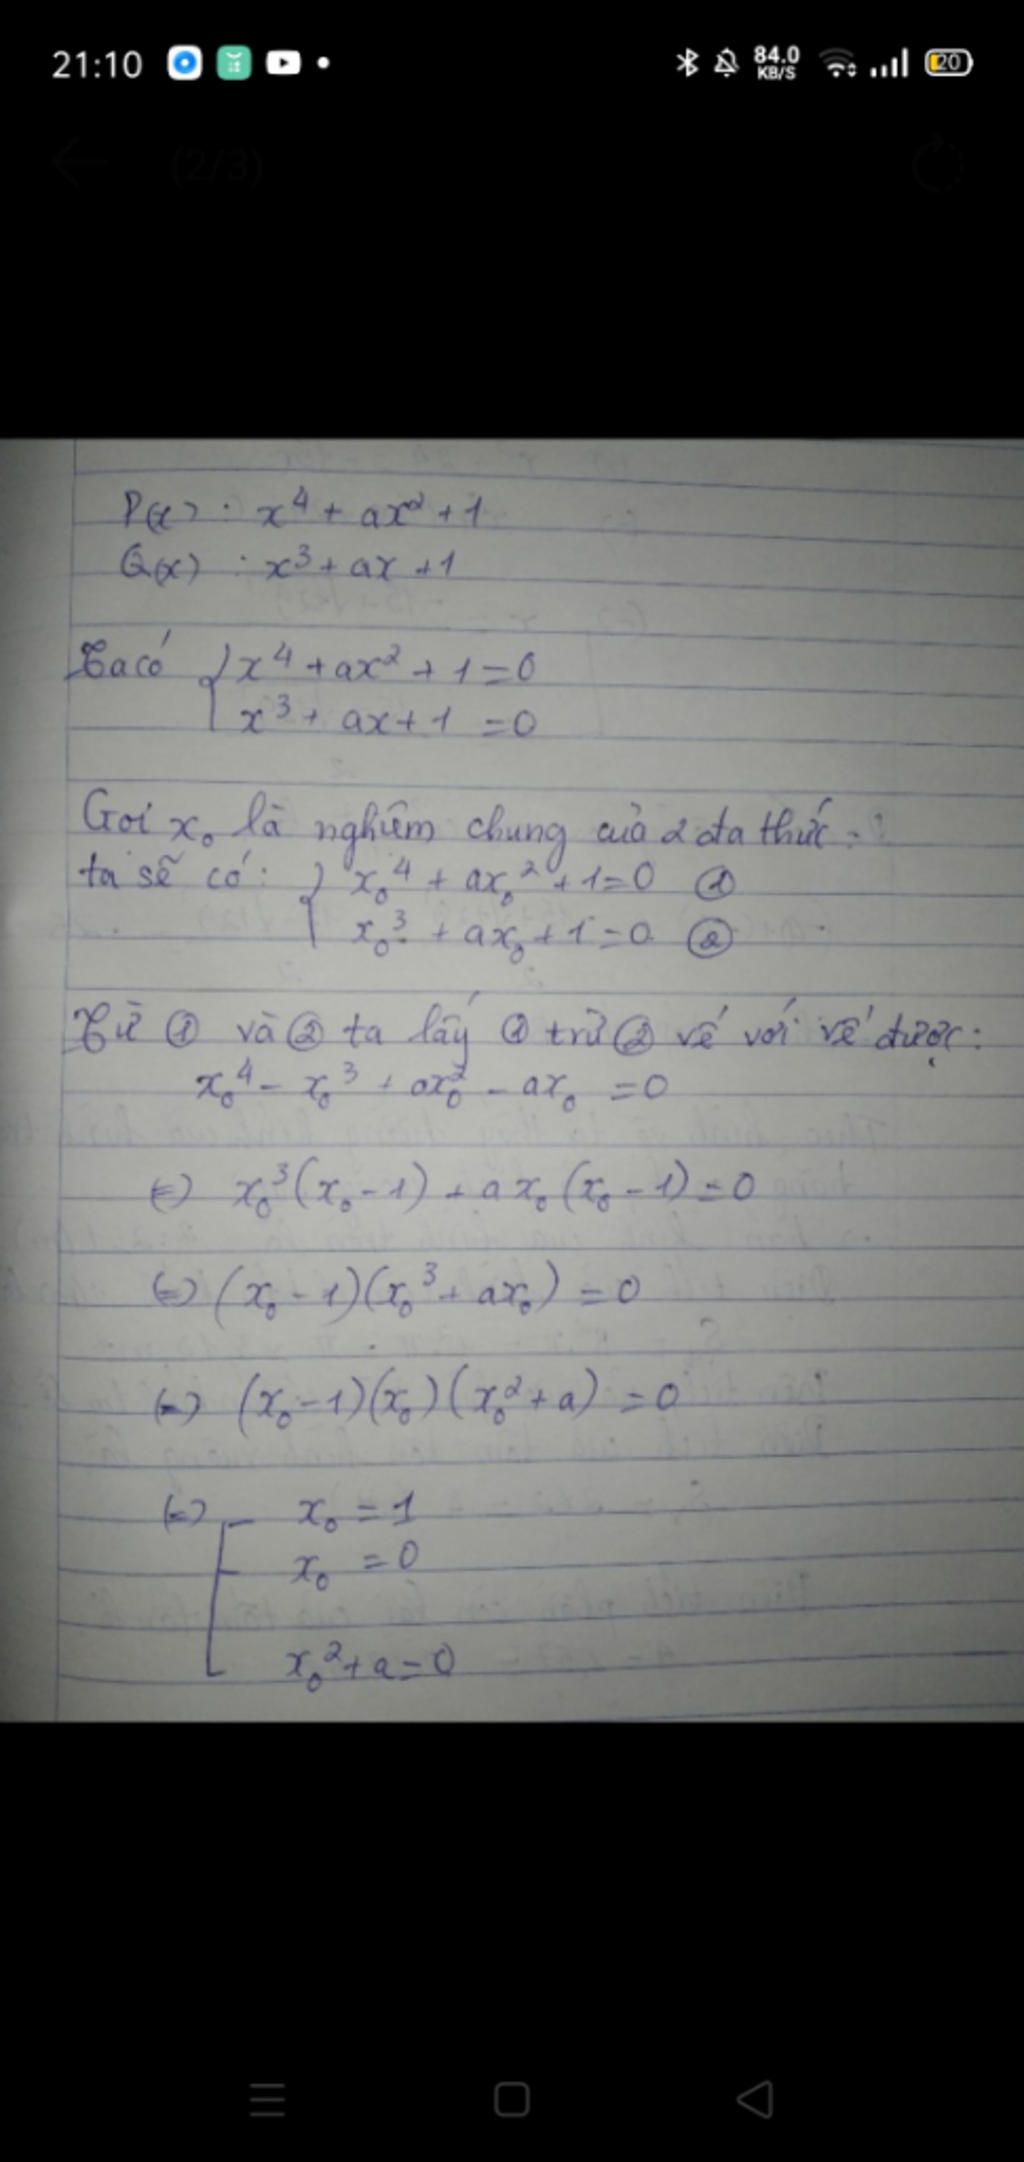 21:10
84.0 KB/S
20
(2/3)
P(x) : x⁴ + ax² + 1
Q(x) : x³ + ax + 1
Ta có { x⁴ + ax² + 1 = 0
x³ + ax + 1 = 0
Gọi x₀ là nghiệm chung của 2 đa thức.
ta sẽ có: { x₀⁴ + ax₀² + 1 = 0 ①
x₀³ + ax₀ + 1 = 0 ②
Từ ① và ② ta lấy ① trừ ② vế với vế được:
x₀⁴ - x₀³ + ax₀² - ax₀ = 0
(=) x₀³(x₀ - 1) + ax₀(x₀ - 1) = 0
(=) (x₀ - 1)(x₀³ + ax₀) = 0
(=) (x₀ - 1)(x₀)(x₀² + a) = 0
(=) [ x₀ = 1
x₀ = 0
x₀² + a = 0